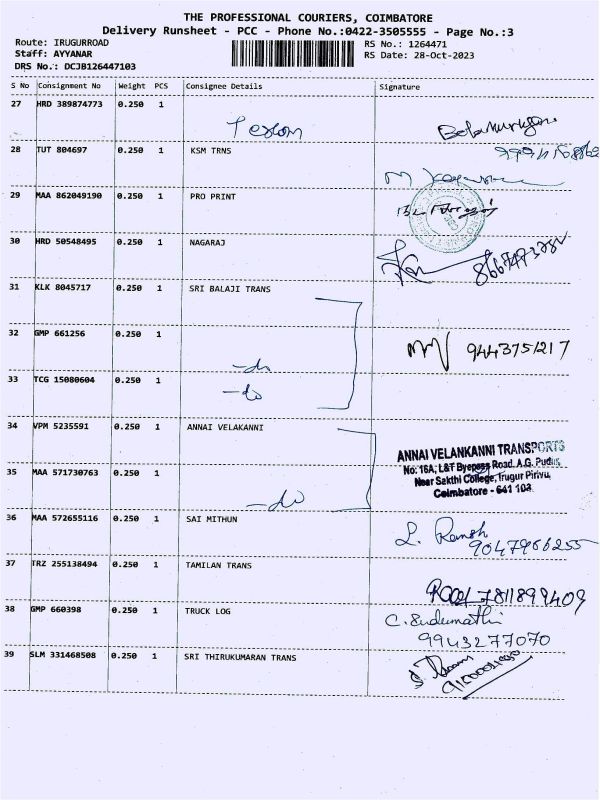 THE PROFESSIONAL COURIERS, COIMBATORE
Delivery Runsheet - PCC - Phone No.:0422-3505555 - Page No.:3
Route: IRUGURROAD
Staff: AYYANAR
DRS No.: DCJB126447103
RS No.: 1264471
RS Date: 28-Oct-2023
S No Consignment No Weight PCS Consignee Details Signature
27 HRD 389874773 0.250 1
28 TUT 804697 0.250 1 KSM TRNS
29 MAA 862049190 0.250 1 PRO PRINT
30 HRD 50548495 0.250 1 NAGARAJ
31 KLK 8045717 0.250 1 SRI BALAJI TRANS
32 GMP 661256 0.250 1 -do
9443751217
33 TCG 15080604 0.250 1 -do
34 VPM 5235591 0.250 1 ANNAI VELAKANNI
ANNAI VELANKANNI TRANSPORTS
No: 16A, L&T Byepass Road, A.G. Pudur,
Near Sakthi College, Irugur Pirivu,
Coimbatore - 641 103.
35 MAA 571730763 0.250 1 -do
36 MAA 572655116 0.250 1 SAI MITHUN
L. Ramsh
9047966255
37 TRZ 255138494 0.250 1 TAMILAN TRANS
7811899409
38 GMP 660398 0.250 1 TRUCK LOG
C. Indumathi
9943277070
39 SLM 331468508 0.250 1 SRI THIRUKUMARAN TRANS